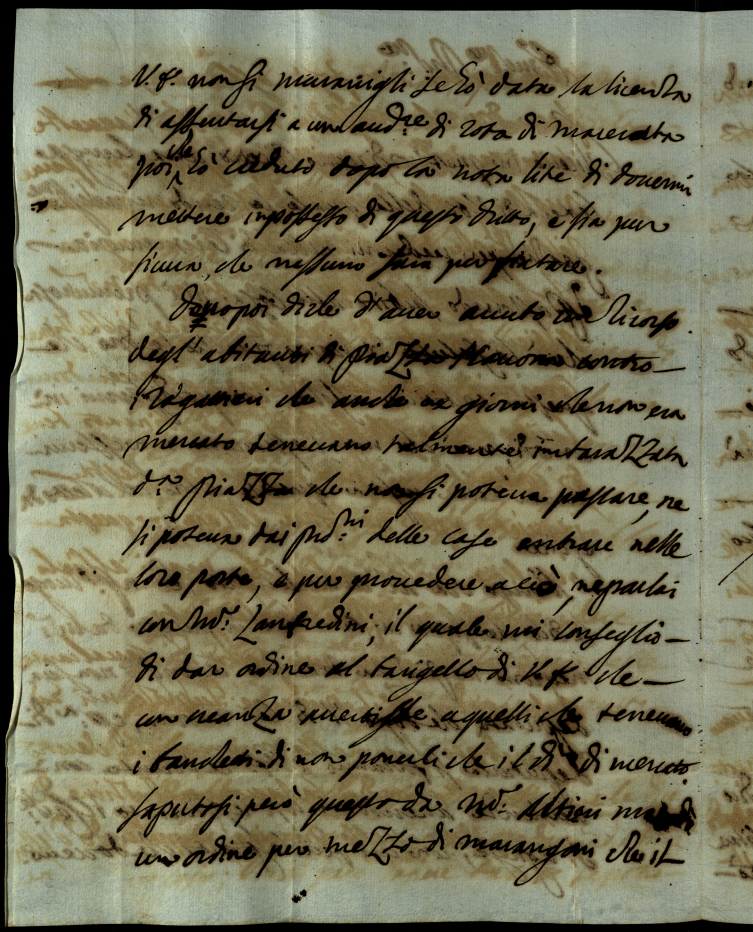 V.E. non si maravigli se hò data la licenza
di assentarsi a un aud.re di rota di macerata
poi che hò creduto dopo la nota lite di dovermi
mettere in possesso di questo dritto, e sia pur
sicura, che nessuno sarà per fiatare.
Devo poi dirle d'aver avuto un ricorso
degl' abitanti di Piazza Navona contro
i Regattieri che anche in giorni che non era
mercato tenevano talmente imbarazzata
d.a Piazza che non si poteva passare, ne
si poteva dai pad.ni delle case entrare nelle
loro porte, e per provedere a ciò, ne parlai
con Md.r Zanfredini, il quale mi conseglio
di dar ordine al barigello di V.E. che
con creanza avertisse a quelli che tenevano
i banchetti di non ponerli che il dì di mercato
saputosi però questo da Md.r Altieri mandò
un ordine per mezzo di marangoni che il